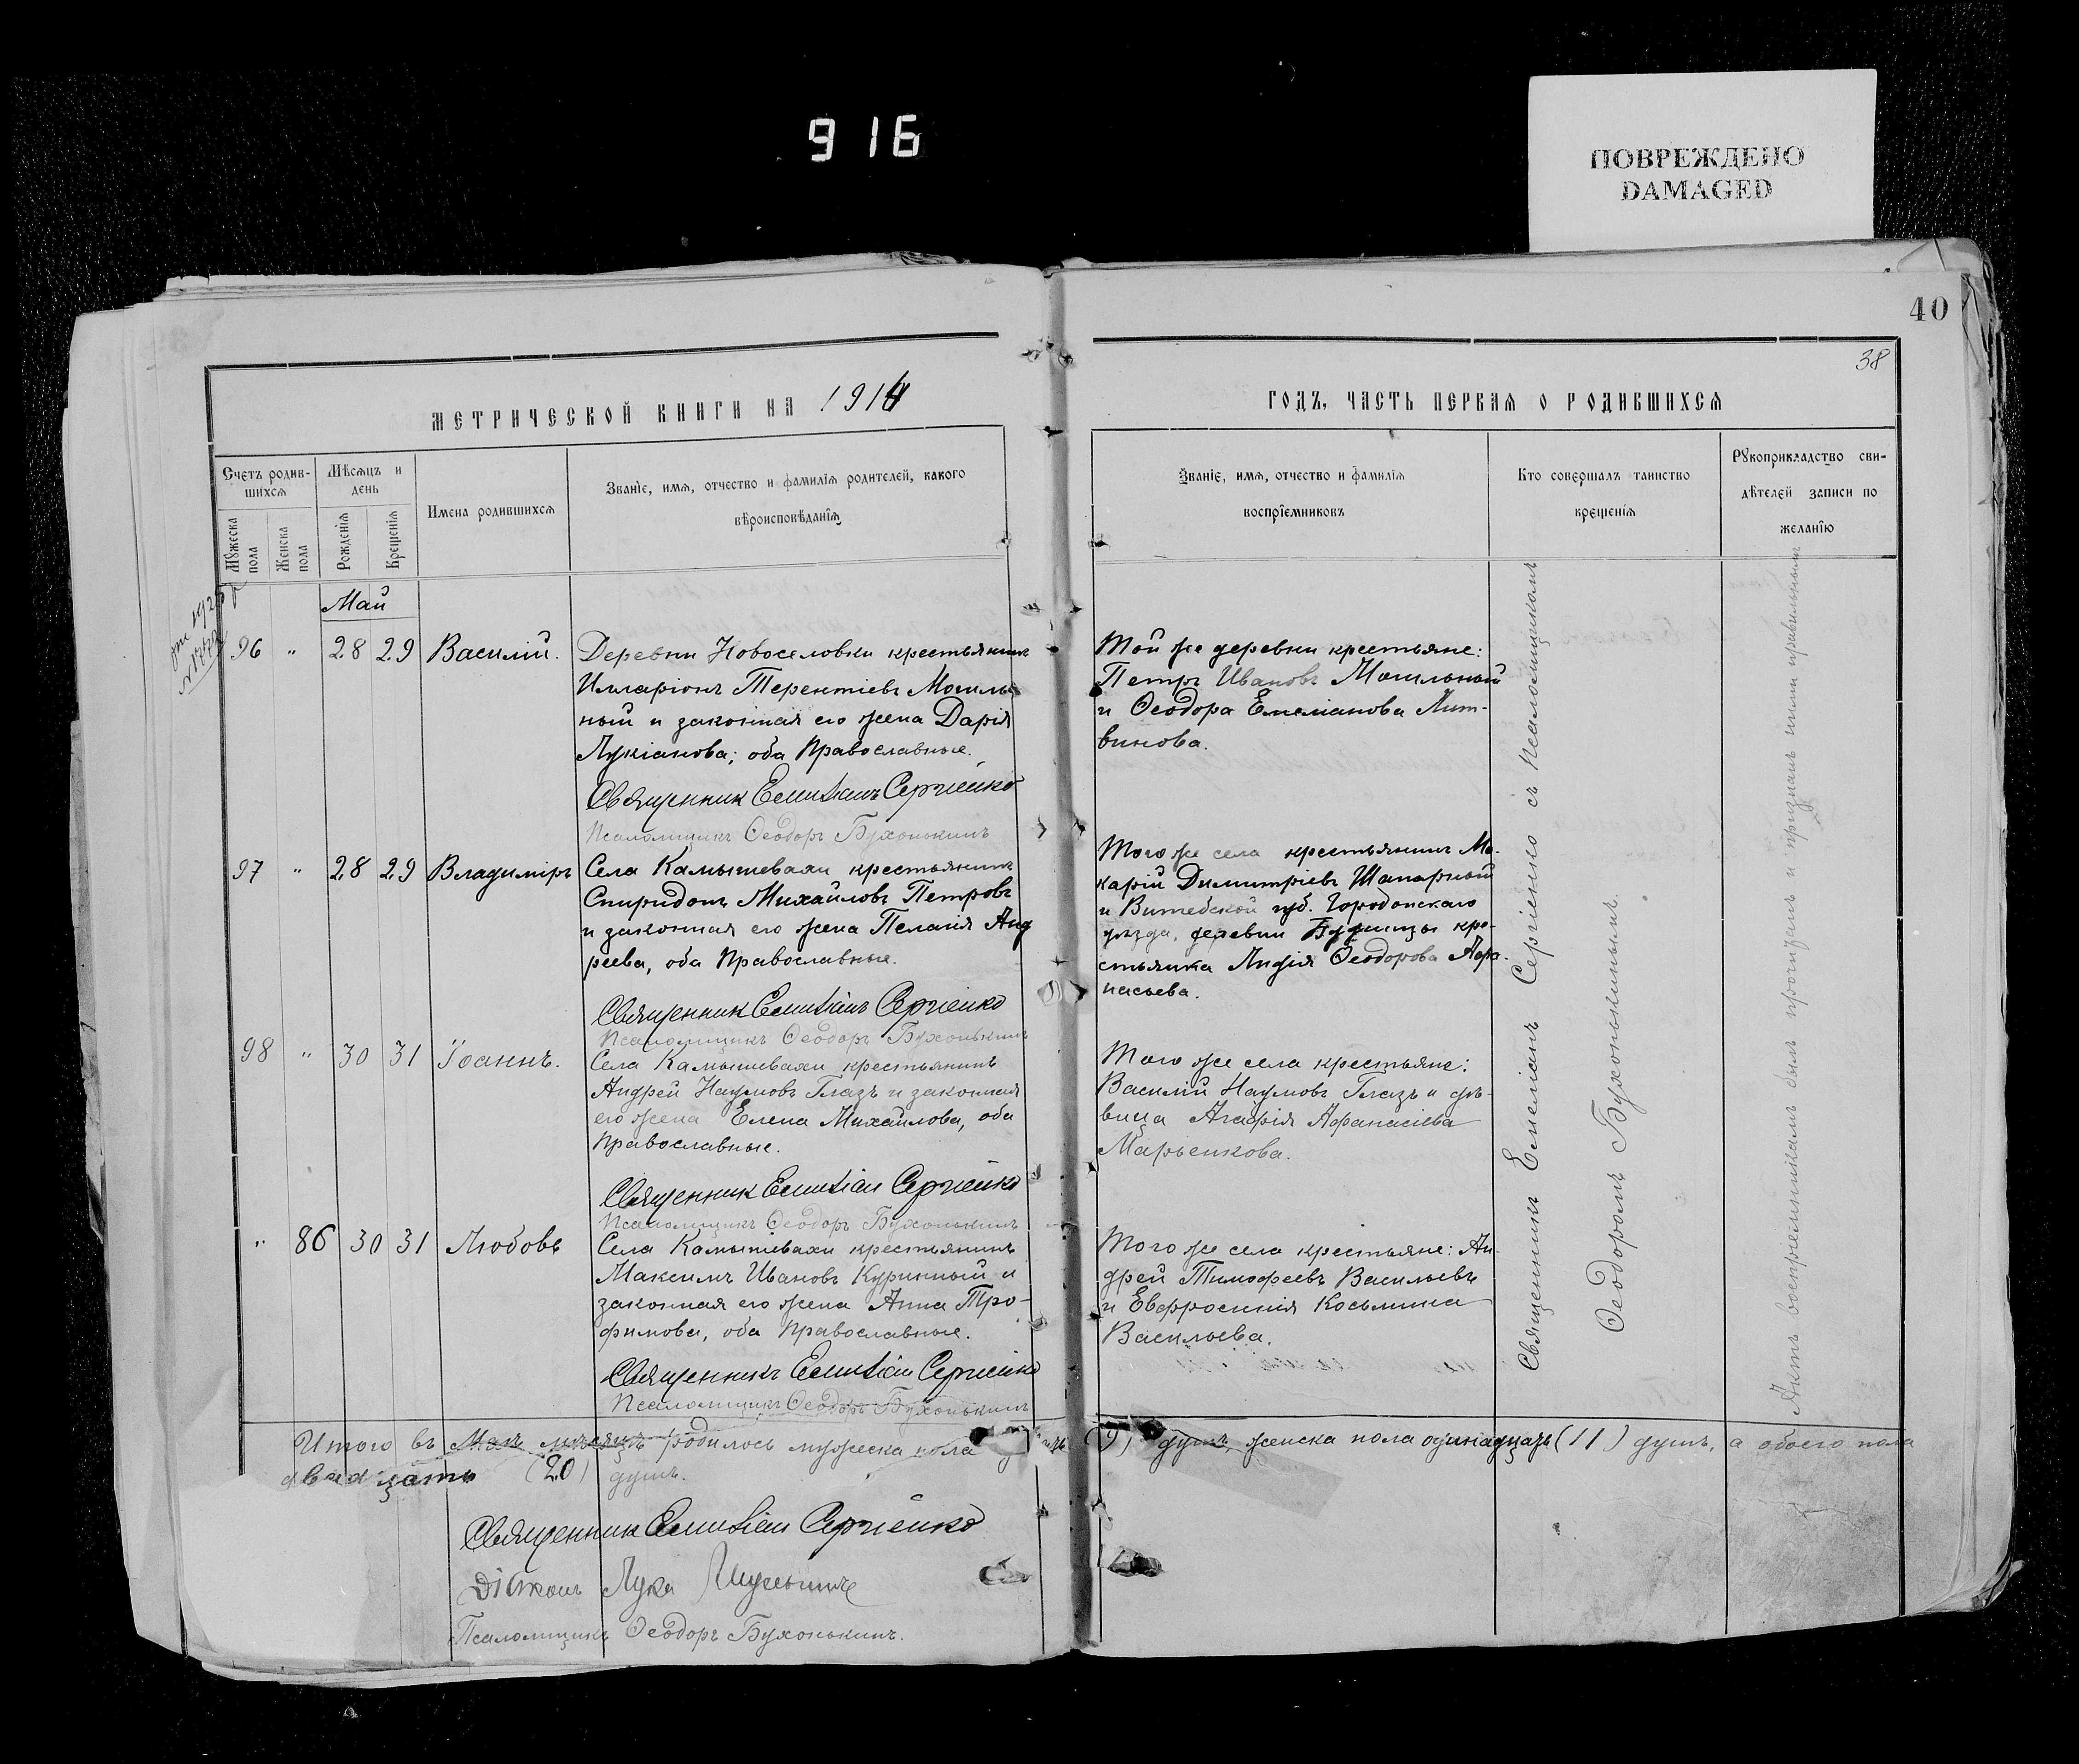 916
ПОВРЕЖДЕНО
DAMAGED
40
38
МЕТРИЧЕСКОЙ КНИГИ НА 1914
ГОДЪ, ЧАСТЬ ПЕРВАЯ О РОДИВШИХСЯ
Счетъ родив-
шихся
Мужеска пола
Женска пола
Мѣсяцъ и
день
Рожденія
Крещенія
Имена родившихся
Званіе, имя, отчество и фамилія родителей, какого
вѣроисповѣданія
Званіе, имя, отчество и фамилія
воспріемниковъ
Кто совершалъ таинство
крещенія
Рукоприкладство сви-
дѣтелей записи по
желанію
Май
96 " 28 29 Василій.
Деревни Новоселовки крестьянинъ
Илларіонъ Терентіевъ Могиль-
ный и законная его жена Дарія
Лукіанова; оба Православные.
Священник Емиліанъ Сергіенко
Псаломщикъ Ѳеодоръ Бухонькинъ
Той же деревни крестьяне:
Петръ Ивановъ Могильный
и Ѳеодора Емеліанова Лит-
винова.
97 " 28 29 Владиміръ
Села Камышевахи крестьянинъ
Спиридонъ Михайловъ Петровъ
и законная его жена Пелагія Анд
реева, оба Православные.
Священник Емиліанъ Сергіенко
Псаломщикъ Ѳеодоръ Бухонькинъ
Того же села крестьянинъ Ма-
карій Димитріевъ Шапарный
и Витебской губ. Городокскаго
уѣзда, деревни кре-
стьянка Лидія Ѳеодорова Афа-
насьева.
98 " 30 31 Іоаннъ.
Села Камышевахи крестьянинъ
Андрей Наумовъ Глазъ и законная
его жена Елена Михайлова, оба
Православные.
Священник Емиліан Сергіенко
Псаломщикъ Ѳеодоръ Бухонькинъ
Того же села крестьяне:
Василій Наумовъ Глазъ и дѣ-
вица Агафія Афанасіева
Марьенкова.
" 86 30 31 Любовь
Села Камышевахи крестьянинъ
Максимъ Ивановъ Куринный и
законная его жена Анна Тро-
фимова, оба Православные.
Священникъ Емиліан Сергіенко
Псаломщикъ Ѳеодоръ Бухонькинъ
Того же села крестьяне: Ан-
дрей Тимофеевъ Васильевъ
и Евфросинія Косьмина
Васильева.
Священникъ Емеліанъ Сергіенко съ псаломщикомъ
Ѳеодоромъ Бухонькинымъ.
Актъ воспріемникамъ былъ прочитанъ и признанъ ими правильнымъ
Итого въ Маѣ мѣсяцѣ родилось мужеска пола (9) душъ, женска пола одинадцать (11) душъ, а обоего пола
двадцать (20) душъ.
Священник Емиліан Сергіенко
Діаконъ Лука
Псаломщикъ Ѳеодоръ Бухонькинъ.